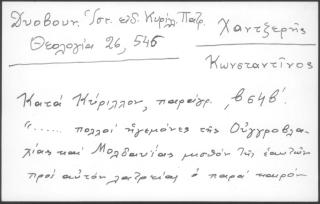 Δυοβουν. Ἱστ. εἰδ. Κυρίλ. Πατρ.
Θεολογία 26, 546
Χαντζερῆς
Κωνσταντῖνος
Κατά Κύριλλον, παράγρ. ,β54β'.
"...... πολλοί ἡγεμόνες τῆς Οὐγγροβλα-
χίας καί Μολδαυΐας μισθόν τῆς ἑαυτῶν
πρός αὐτόν λατρείας ὁ παρά καιρόν